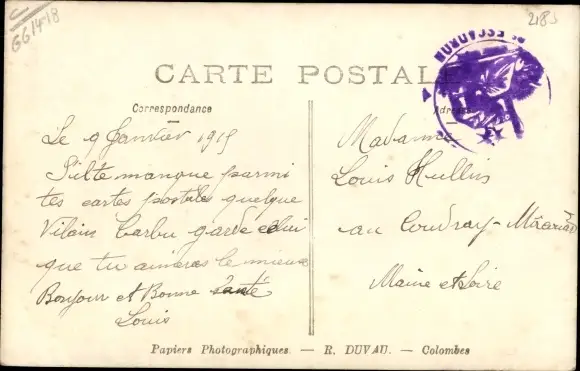 GG 14-18
2185
ESCADRON
CARTE POSTALE
Correspondance
Adresse
Le 9 Janvier 1915
S'il te manque parmi
tes cartes postale quelque
Vilain barbu garde celui
que tu aimeras le mieux
Bonjour et Bonne santé
Louis
Madame
Louis Hullin
au Coudray-Macouard
Maine et Loire
Papiers Photographiques. — R. DUVAU. — Colombes